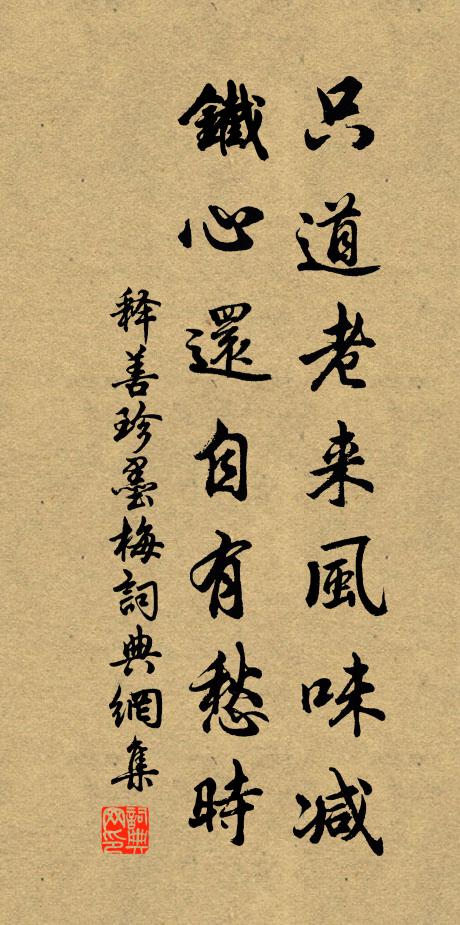 只道老来風味减
鐵心還自有愁時
释善珍墨梅詞典網集
詞典网印